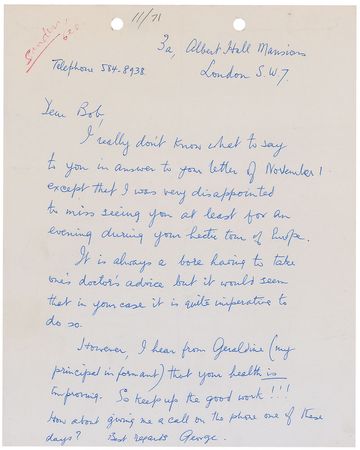 11/71
3a, Albert Hall Mansions
Telephone 584.8938
London S.W.7.
Dear Bob,
I really don't know what to say
to you in answer to your letter of November 1
except that I was very disappointed
to miss seeing you at least for an
evening during your hectic tour of Europe.
It is always a bore having to take
one's doctor's advice but it would seem
that in your case it is quite imperative to
do so.
However, I hear from Geraldine (my
principal informant) that your health is
improving. So keep up the good work!!!
How about giving me a call on the phone one of these
days? Best regards George.